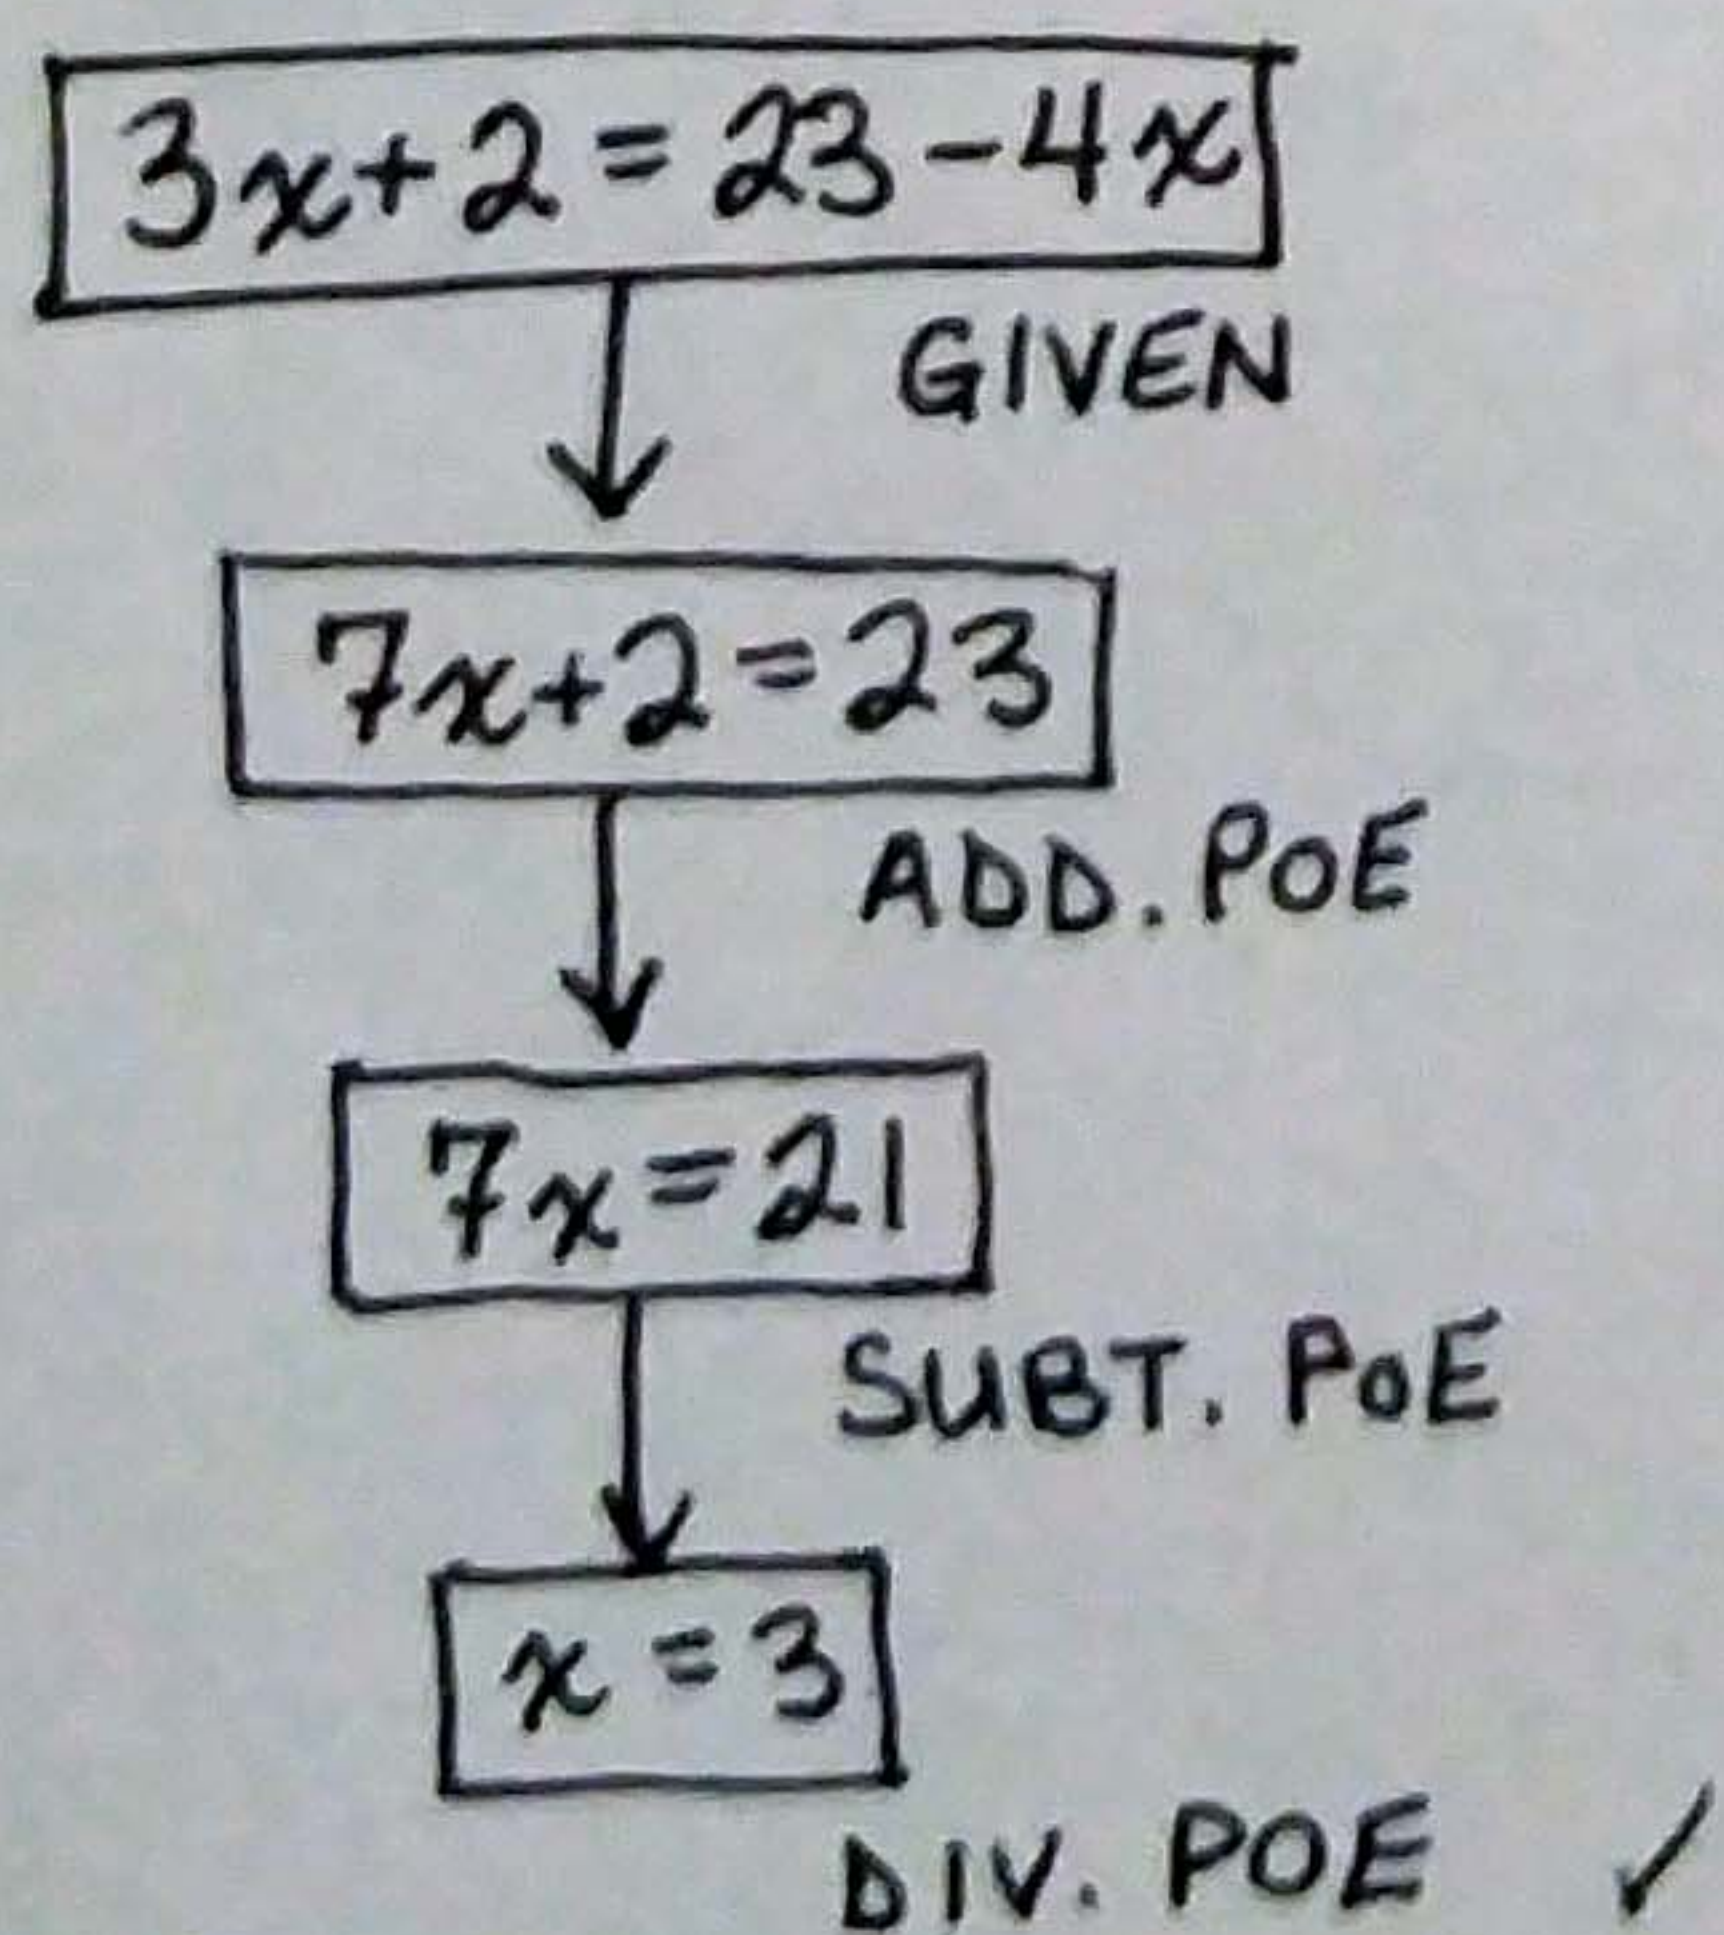 3x+2=23-4x
GIVEN
7x+2=23
ADD. POE
7x=21
SUBT. POE
x=3
DIV. POE ✓